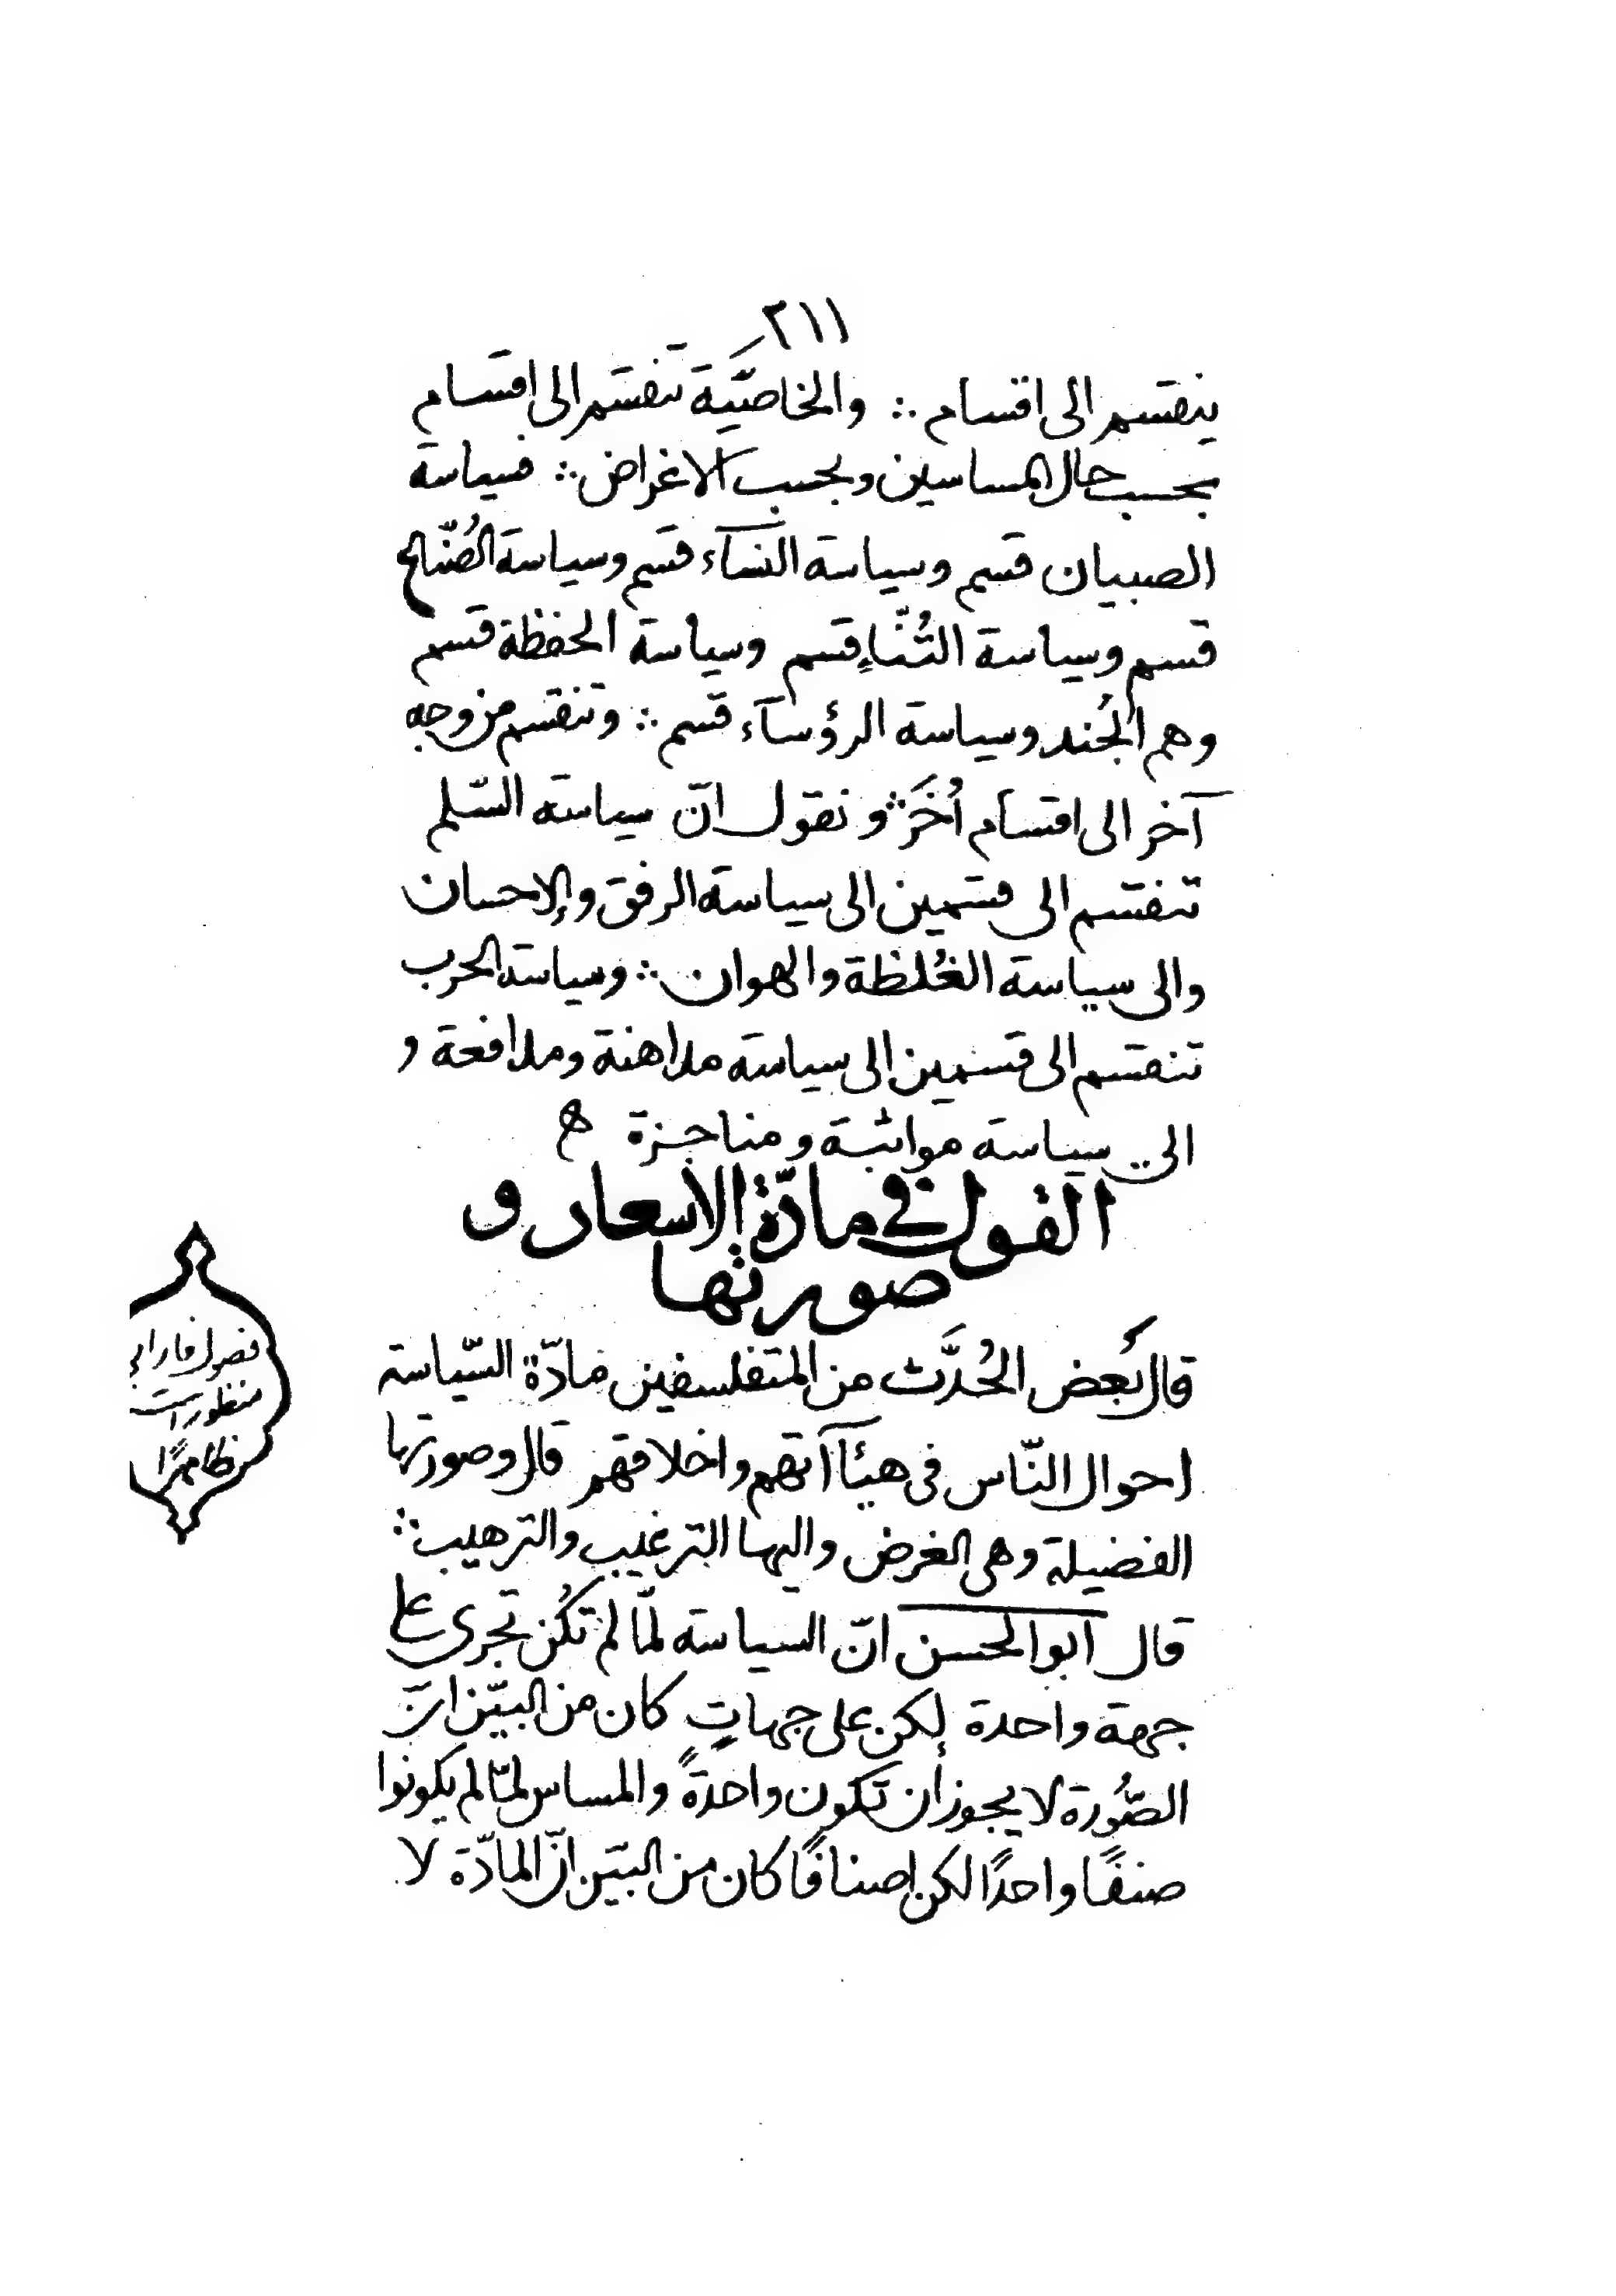 ٢١١
ينقسم الى اقسام ∴ والخاصّيّة تنقسم الى اقسام
بحسب حال المساسين وبحسب الاغراض ∴ فسياسة
الصبيان قسم وسياسة النسآء قسم وسياسة الصُنّاع
قسم وسياسة التُنّاءِ قسم وسياسة الحفظة قسم
وهم الجُند وسياسة الرؤسآء قسم ∴ وتنقسم من وجه
آخر الى اقسام أُخَر ∴ ونقول انّ سياسة السّلم
تنقسم الى قسمين الى سياسة الرفق والإحسان
والى سياسة الغُلظة والهوان ∴ وسياسة الحرب
تنقسم الى قسمين الى سياسة مداهنة ومدافعة و
الى سياسة مواثبة ومناجزة ه
القول في مادّة الاسعار و
صورتها
قال بَعض الحُدَّث من المتفلسفين مادّة السّياسة
احوال النّاس فى هيئآآتهم واخلاقهم قال وصورتها
الفضيلة وهى الغرض واليها الترغيب والترهيب ∴
قال ابو الحسن انّ السياسة لمّا لم تكُن تجرى على
جهة واحدة لكن على جهاتٍ كان من البيّن انّ
الصُّورة لا يجوز أن تكون واحدةً والمساس لمّا لم يكونوا
صنفًا واحدًا لكن اصنافًا كان من البيّن انّ المادّة لا
فصول فارابى
منظور است
ظاهرًا